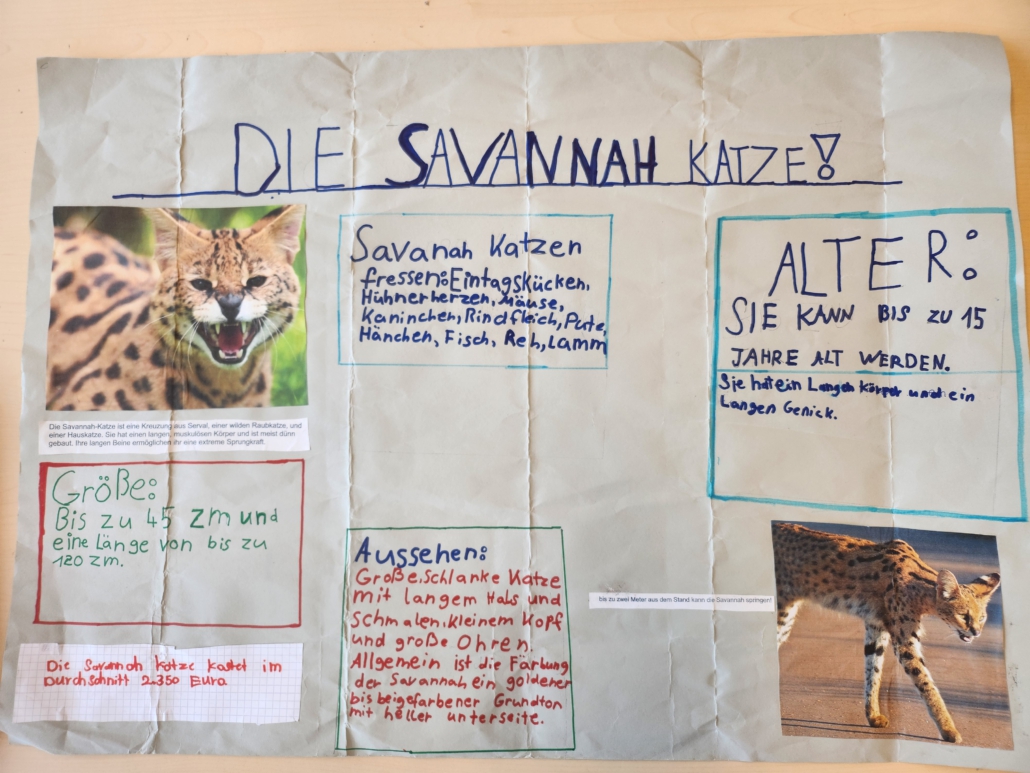 DIE SAVANNAH KATZE!
Die Savannah-Katze ist eine Kreuzung aus Serval, einer wilden Raubkatze, und
einer Hauskatze. Sie hat einen langen, muskulösen Körper und ist meist dünn
gebaut. Ihre langen Beine ermöglichen ihr eine extreme Sprungkraft.
Größe:
Bis zu 45 zm und
eine Länge von bis zu
120 zm.
Die Savannah Katze kostet im
Durchschnitt 2.350 Eura
Savanah Katzen
fressen: Eintagskücken,
Hühnerherzen, Mäuse,
Kaninchen, Rindfleich, Pute,
Hänchen, Fisch, Reh, Lamm
Aussehen:
Große, Schlanke Katze
mit langem Hals und
Schmalen, kleinem Kopf
und große Ohren.
Allgemein ist die Färbung
der Savannah ein goldener
bis beigefarbener Grundton
mit heller unterseite.
ALTER:
SIE KANN BIS ZU 15
JAHRE ALT WERDEN.
Sie hat ein Langen Körper und ein
Langen Genick.
bis zu zwei Meter aus dem Stand kann die Savannah springen!